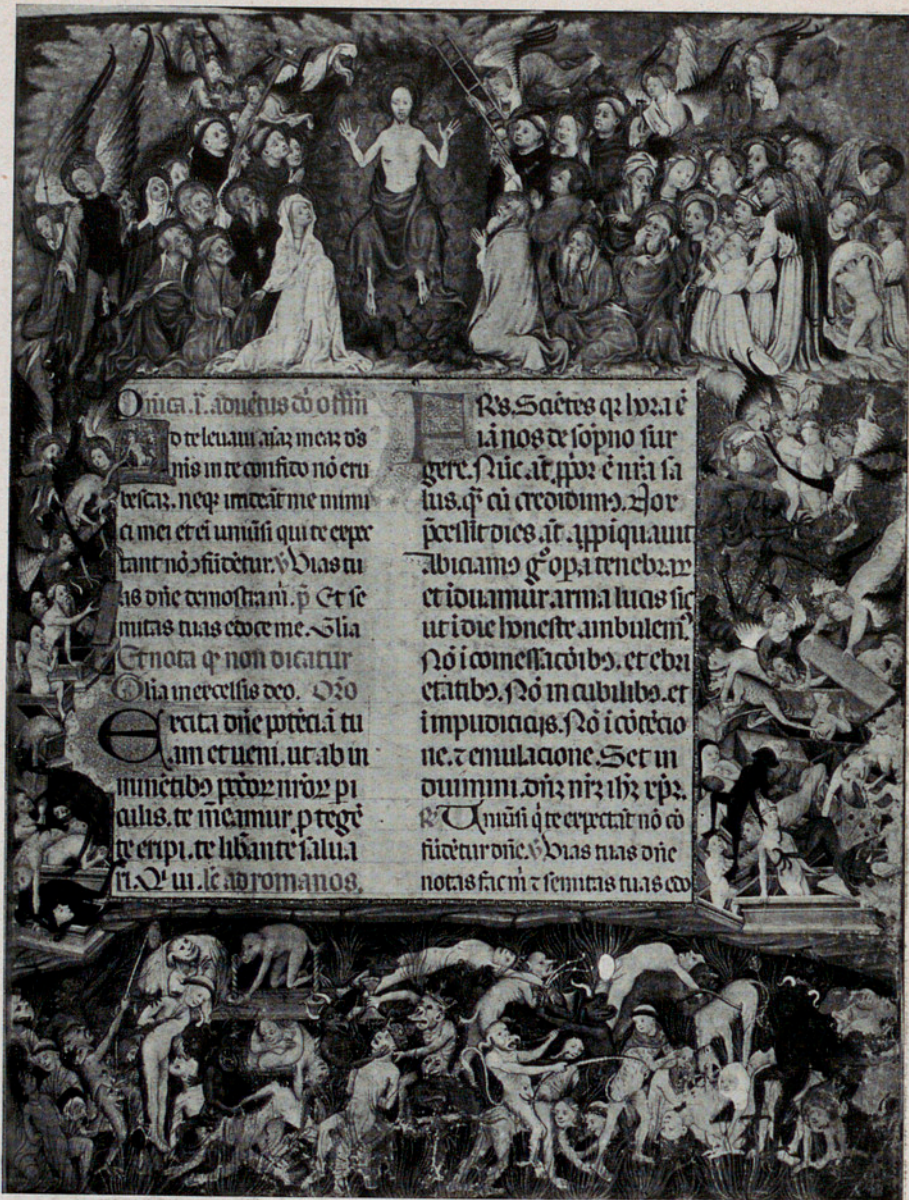 Onica .i. aduētus dō offm
Ad te leuaui aīaz meaz dˢ
mis in te confido nō eru
bescaz. neqz irrideāt me inimi
ci mei et eī uniūsi qui te expec
tant nō ↄfūdētur. ℣ Vias tu
as dn̄e demostra m̄. p̄ Et se
mitas tuas edoce me. Glia
Et nota qͬ non dicatur
Glia in excelsis deo. Oro
Excita dn̄e potēciā tu
am et ueni. ut ab in
minētibꝰ pctōꝝ nr̄oꝝ pi
culis. te m̄eamur ꝓtegē
te eripi. te libāante salua
ri. Qi ui. lc̄ ad romanos.
FRˢ. Sciētes qꝛ hora ē
iā nos de sōpno sur
gere. Nūc āt ꝓpꝛ ē nr̄a sa
lus. qᷓ cū credidimꝰ. Nox
p̄cessit dies āt appiquauit
Abiciamꝰ gͦ opa tenebraꝝ
et īduamur arma lucis sic
ut ī die honeste ambulemꝰ
Nō ī comessacōibꝰ. et ebri
etatibꝰ. Nō in cubilibꝰ. et
īpudiciciis. Nō ī cōtēcio
ne. ⁊ emulacione. Set in
duimini. dn̄z nr̄z ihz xpz.
℟ Uniūsi q̄ te expectāt nō cō
fūdētur dn̄e. ℣ Vias tuas dn̄e
notas fac m̄ ⁊ semitas tuas edo